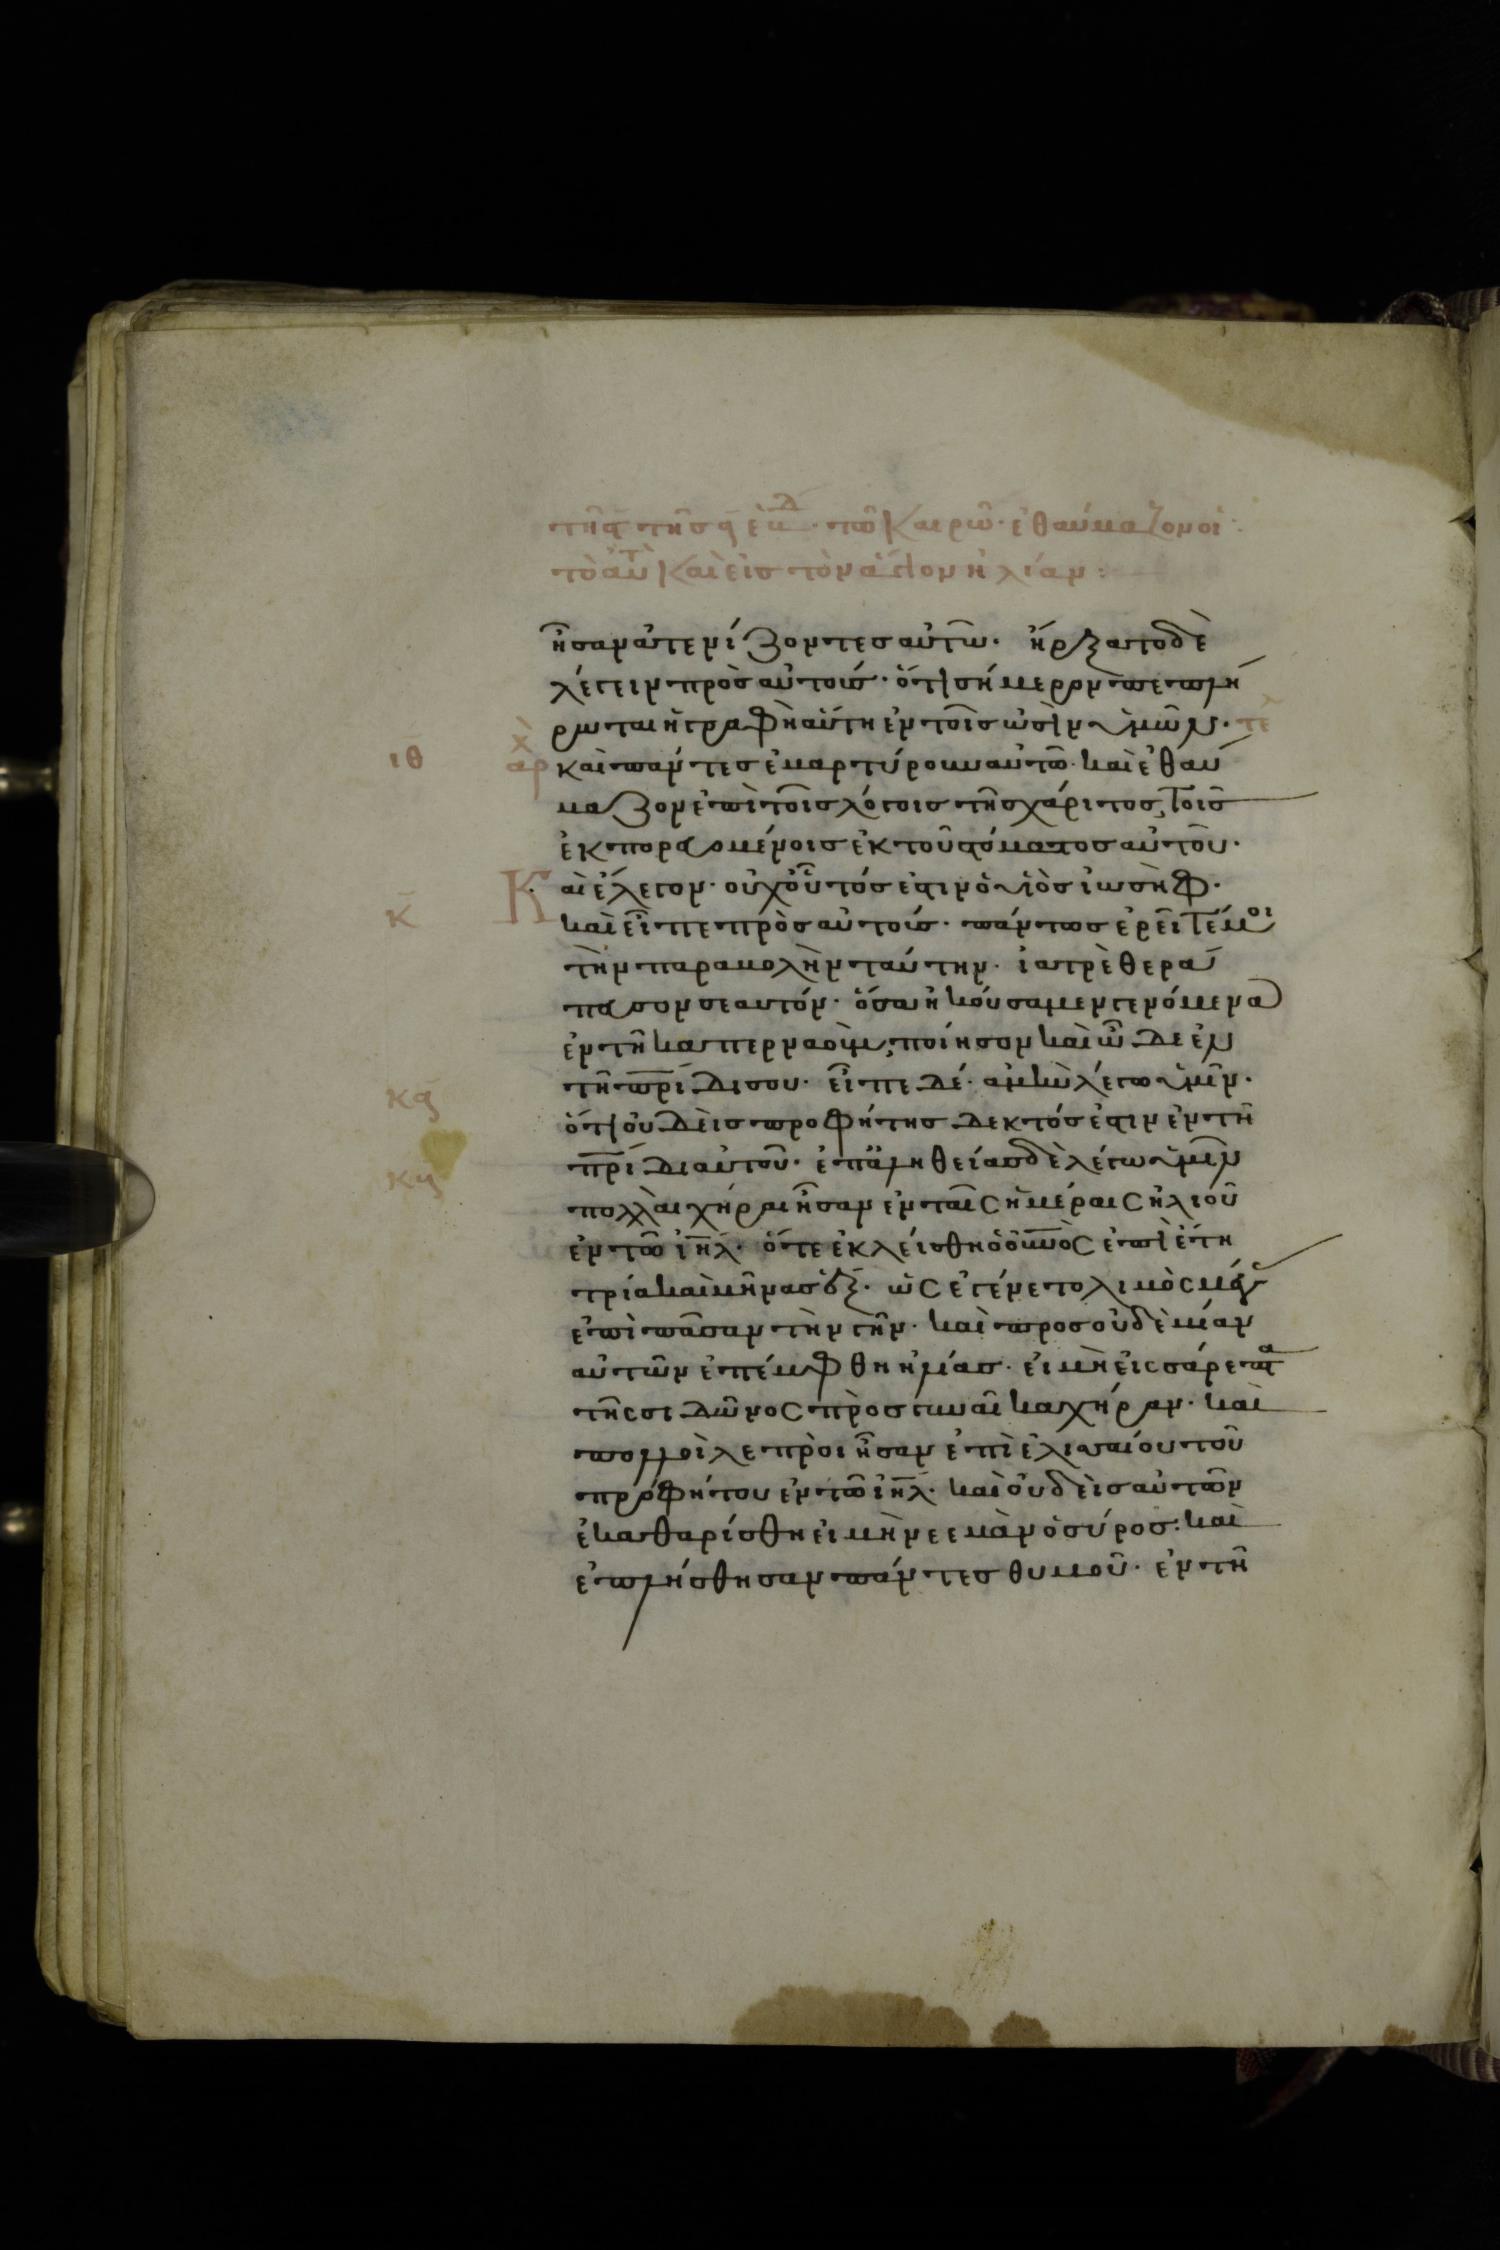 τῆ ϛ τῆς α ἑβδ. τῶ καιρῶ. ἐθαύμαζον οἱ:
τὸ αὐτ καὶ εἰς τὸν ἅγιον ἠλίαν:
ἦσαν ἀτενίζοντες αὐτῶ. ἤρξατο δὲ
λέγειν πρὸς αὐτούς. ὅτι σήμερον πεπλή
ρωται ἡ γραφὴ αὕτη ἐν τοῖς ὠσὶν ὑμῶν. τε
ιθ αρχ καὶ πάντες ἐμαρτύρουν αὐτῶ. καὶ ἐθαύ
μαζον ἐπὶ τοῖς λόγοις τῆς χάριτος, τοῖς
ἐκπορευομένοις ἐκ τοῦ στόματος αὐτοῦ.
Καὶ ἔλεγον. οὐχ οὗτός ἐστιν ὁ υἱὸς ἰωσήφ.
κ καὶ εἶπε πρὸς αὐτούς. πάντως ἐρεῖτέ μοι
τὴν παραβολὴν ταύτην. ἰατρὲ θερά
πευσον σεαυτόν. ὅσα ἠκούσαμεν γενόμενα
ἐν τῆ καπερναοὺμ, ποίησον καὶ ὧδε ἐν
κα τῆ πρίδι σου. εἶπε δέ. ἀμὴν λέγω ὑμῖν.
ὅτι οὐδεὶς προφήτης δεκτός ἐστιν ἐν τῆ
κβ πρίδι αὐτοῦ. ἐπ ἀληθείας δὲ λέγω ὑμῖν
πολλαὶ χῆραι ἦσαν ἐν ταῖς ἡμέραις ἠλιοῦ
ἐν τῶ ἰηλ. ὅτε ἐκλείσθη ὁ οὐνὸς ἐπὶ ἔτη
τρία καὶ μῆνας ἕξ. ὡς ἐγένετο λιμὸς μέγας
ἐπὶ πᾶσαν τὴν γῆν. καὶ προς οὐδεμίαν
αὐτῶν ἐπέμφθη ἠλίας. εἰ μὴ εἰς σάρεπτα
τῆς σιδῶνος πρὸς γυναῖκα χήραν. καὶ
πολλοὶ λεπροὶ ἦσαν ἐπὶ ἐλισσαίου τοῦ
προφήτου ἐν τῶ ἰηλ. καὶ οὐδεὶς αὐτῶν
ἐκαθαρίσθη εἰ μὴ νεεμὰν ὁ σύρος: καὶ
ἐπλήσθησαν πάντες θυμοῦ. ἐν τῆ